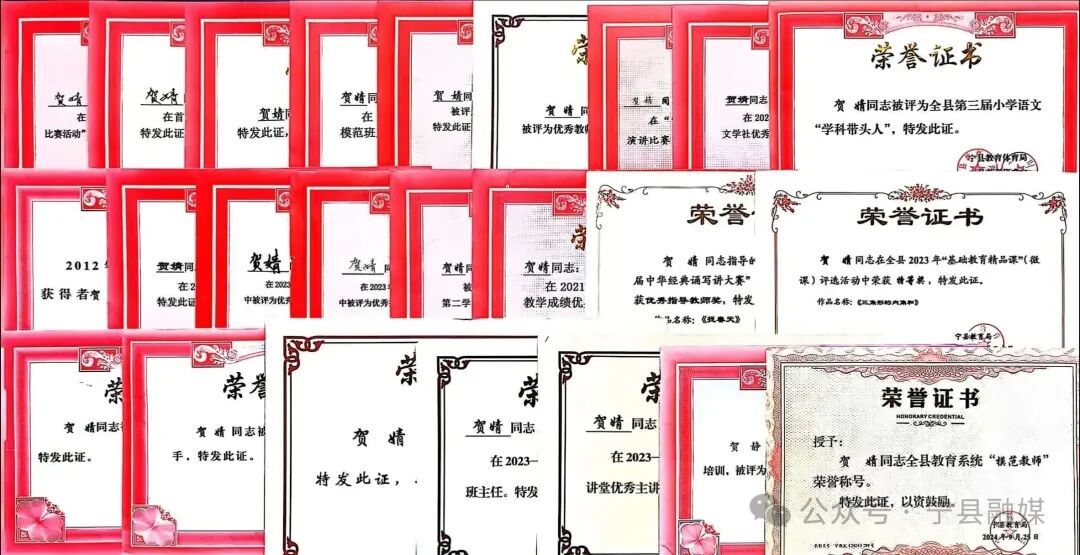 贺婧同
在
比赛活动”
贺婧同
在首
特发此证
贺婧同
在
特发此证,
贺婧同
在
模范班
贺婧同
被评
特发此证
贺婧同
在
被评为优秀教师
贺婧同
在“
演讲比赛
贺婧同志
在202
文学社优秀
荣誉证书
贺 婧同志被评为全县第三届小学语文
“学科带头人”,特发此证。
宁县教育体育局
2012
获得者贺
贺婧同志
在202
特发此证
贺婧同
在
中被评为优
贺婧同
在2023
中被评为优秀
贺婧同
在
被
第二学
荣
贺婧同志:
在2021
教学成绩优
荣誉证
贺 婧同志指导的
届中华经典诵写讲大赛”
获优秀指导教师奖,特发
作品名称:《找春天》
荣誉证书
贺 婧同志在全县2023年“基础教育精品课”(微
课)评选活动中荣获 特等奖,特发此证。
作品名称:《三角形的内角和》
宁县教育局
荣
贺 婧同志被
特发此证。
荣誉
贺 婧同志被
手,特发此证。
荣
贺 婧
特发此证,
荣
贺婧同志
在2023—
班主任。特发
荣
贺婧同志
在2023—
讲堂优秀主讲
贺 静
培训,被评为
特发此证
荣誉证书
HONORARY CREDENTIAL
授予:
贺 婧同志全县教育系统“模范教师”
荣誉称号。
特发此证,以资鼓励。
宁县教育局
2024年9月25日
公众号·宁县融媒